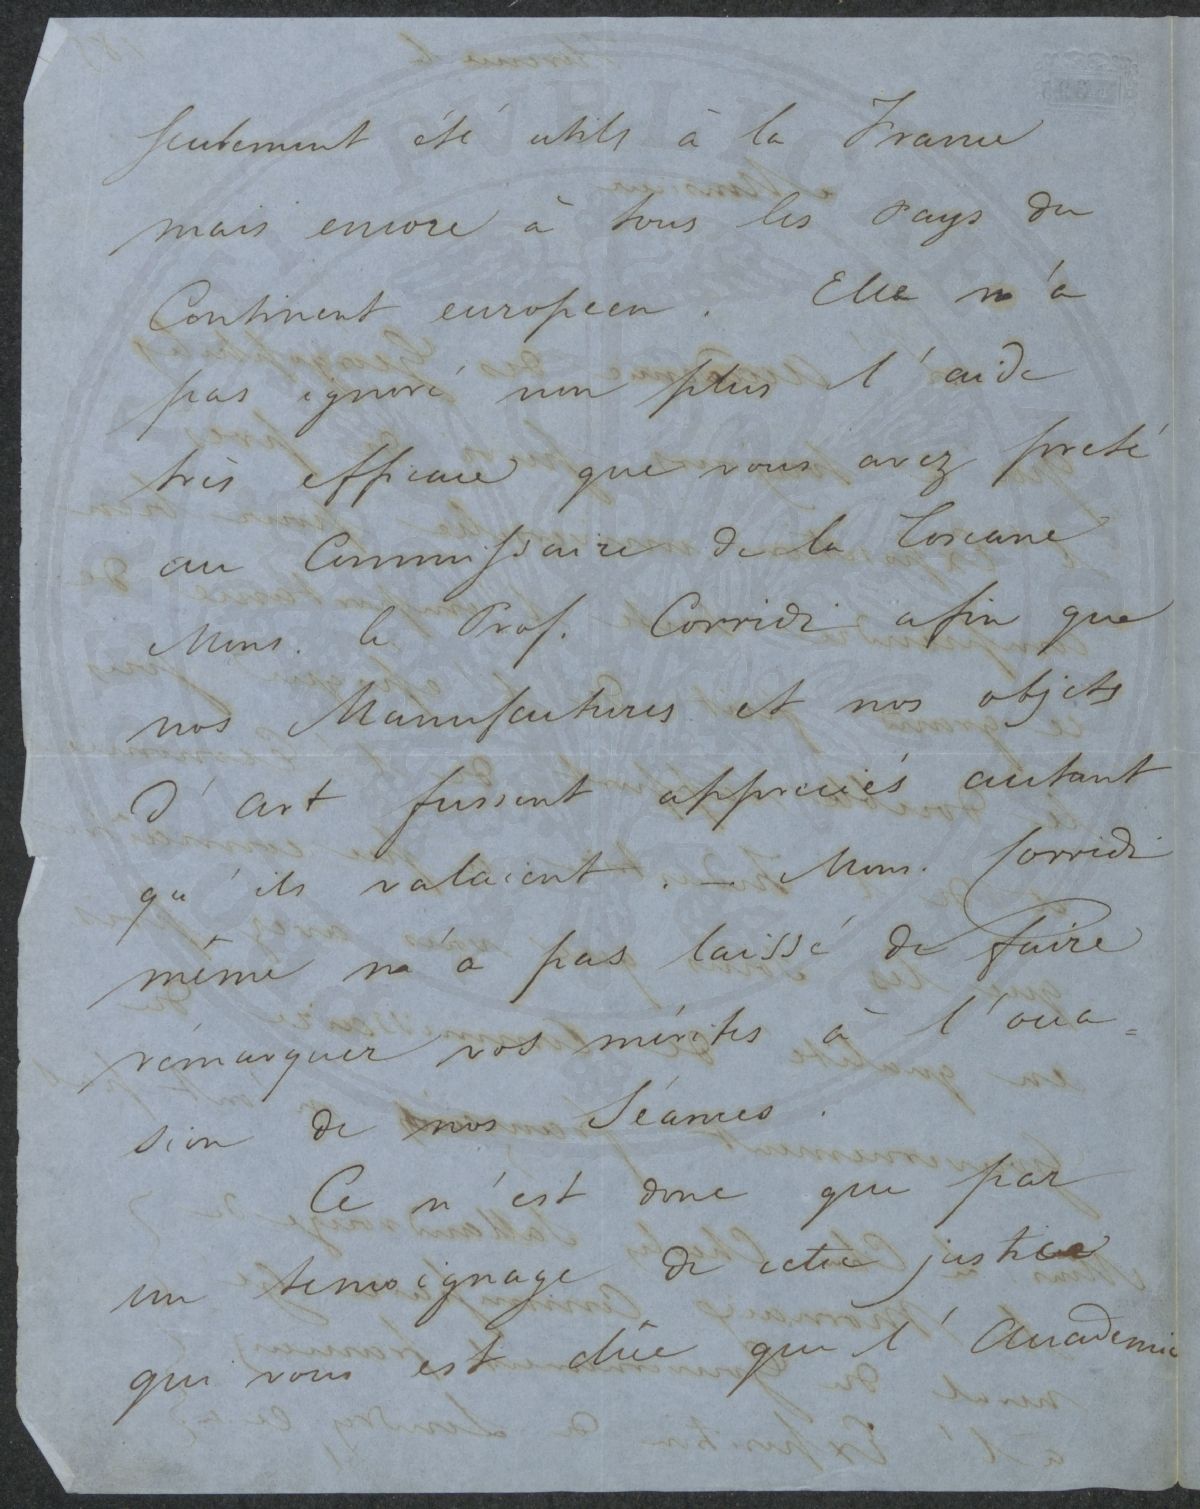 seulement été utils à la France
mais encore à tous les Pays du
Continent européen. Elle n'a
pas ignoré non plus l'aide
très efficace que vous avez preté
au Commissaire de la Toscane
Mons. le Prof. Corridi afin que
nos Manufactures et nos objets
d'art fussent appreciés autant
qu'ils valaient. — Mons. Corridi
même n'a pas laissé de faire
rémarquer vos mérites à l'occa=
sion de nos Séances.
Ce n'est donc que par
un temoignage de cette justice
qui vous est dûe que l'Academie